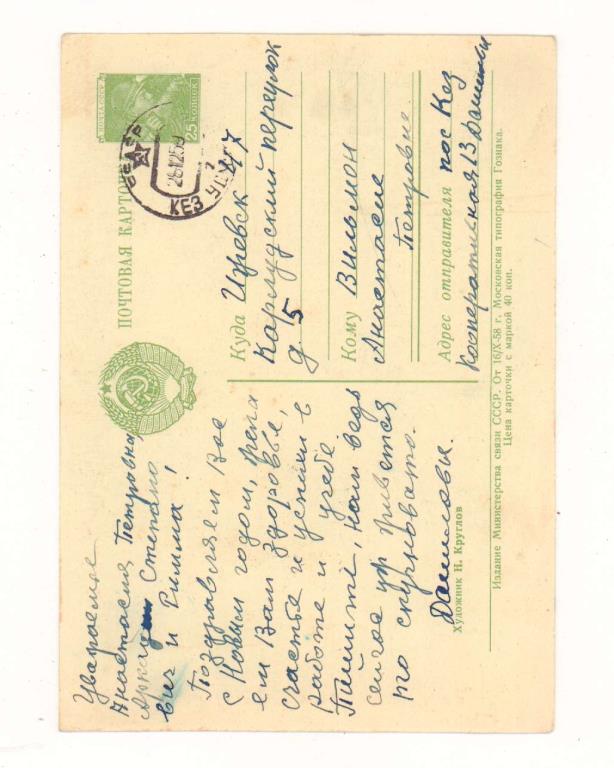 ПОЧТОВАЯ КАРТОЧКА
ПОЧТА СССР
25 КОПЕЕК
СССР
28 12 59
КЕЗ
Уважаемые
Анастасия Петровна,
Аркад Степано
вич и Римма!
Поздравляем Вас
с Новым годом, жела
ем Вам здоровья,
счастья и успехи в
работе и учебе.
Пишите, нам ведь
сейчас
то скучновато.
Даниловы.
Художник Н. Круглов
Куда Ижевск 7
Карлудский переулок
д. 5
Кому Вильмон
Анастасие
Петровне.
Адрес отправителя пос Кез
Кооперативная 13 Даниловы
Издание Министерства связи СССР. От 16/X-58 г. Московская типография Гознака.
Цена карточки с маркой 40 коп.